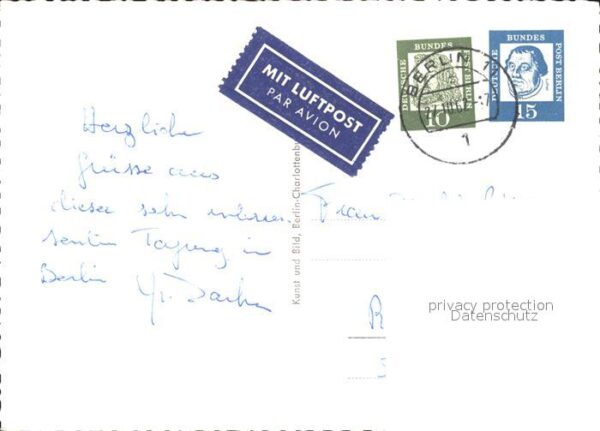 MIT LUFTPOST
PAR AVION
DEUTSCHE BUNDESPOST BERLIN
10
DEUTSCHE BUNDES POST BERLIN
15
BERLIN
1
Herzliche
Grüsse aus
dieser sehr interes-
santen Tagung in
Berlin
Frau
Kunst und Bild, Berlin-Charlottenb
privacy protection
Datenschutz